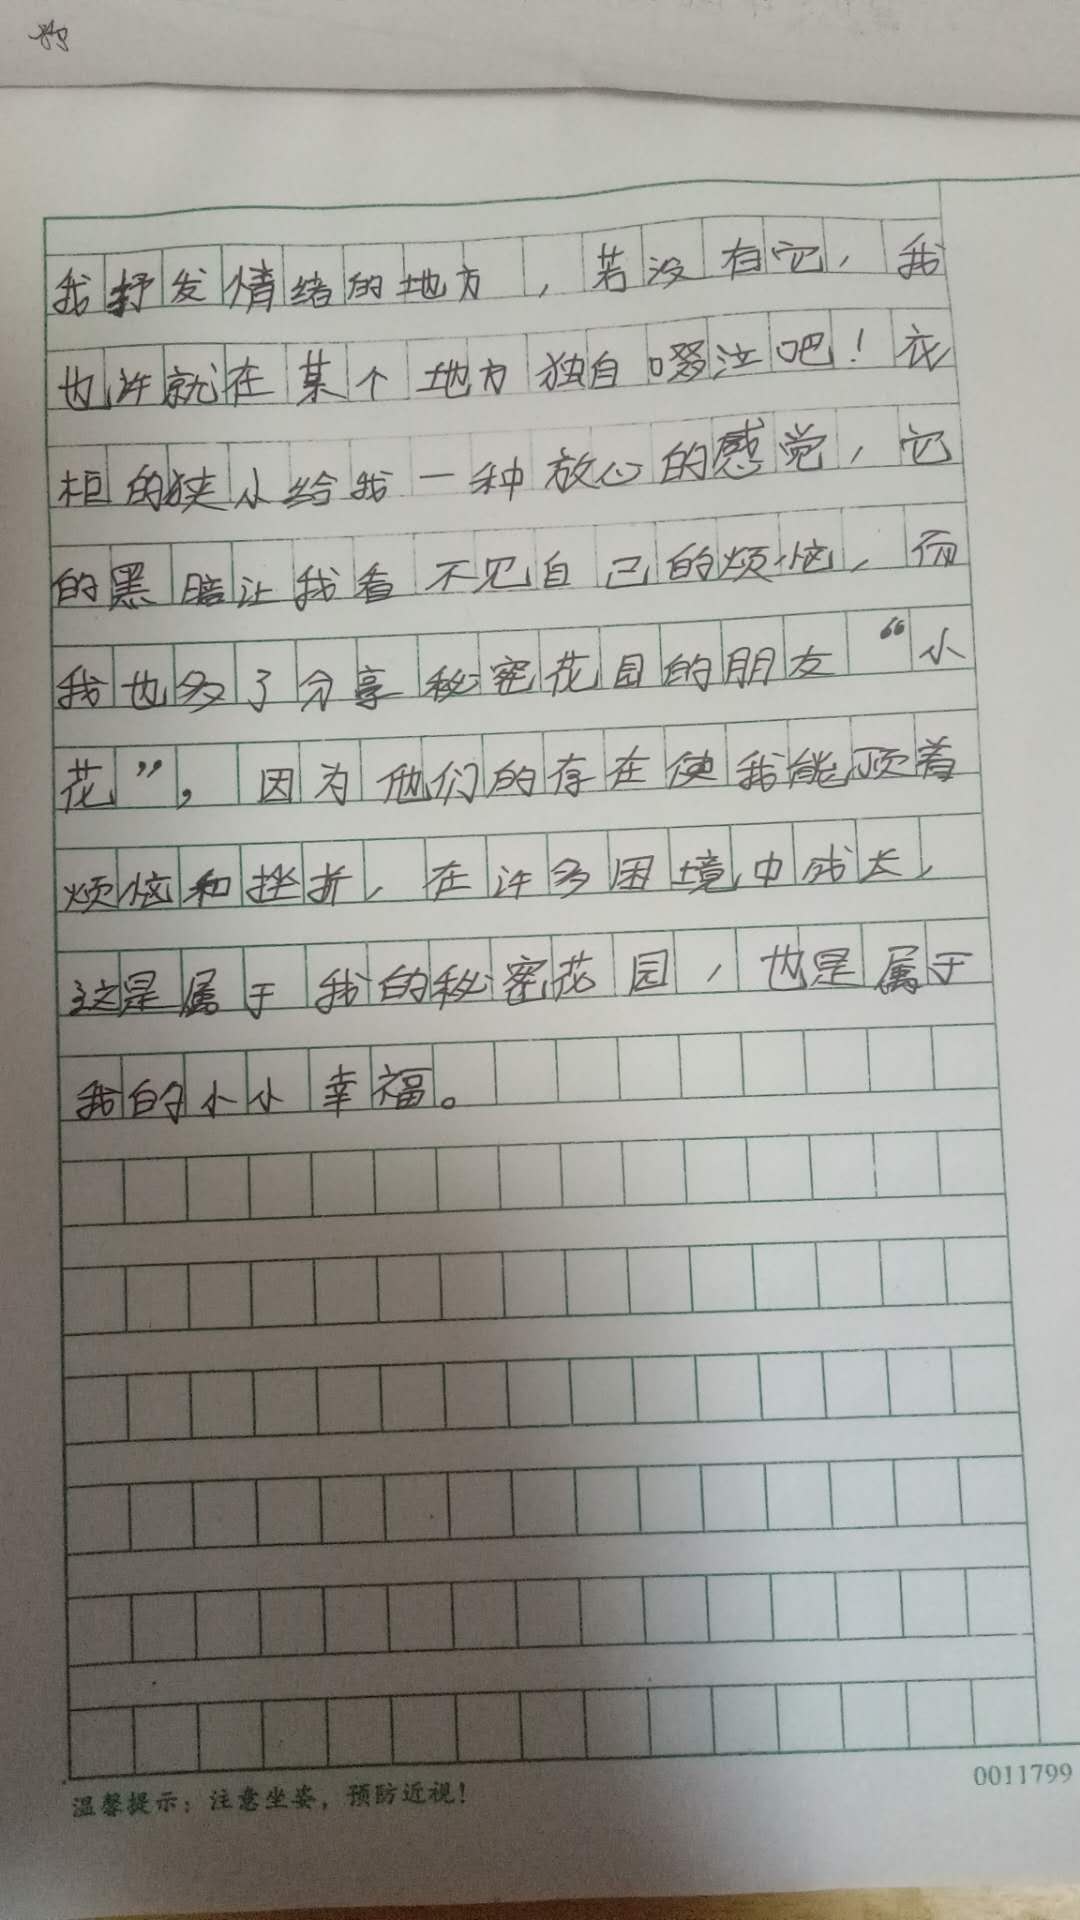 我抒发情绪的地方,若没有它,我
也许就在某个地方独自啜泣吧!衣
柜的狭小给我一种放心的感觉,它
的黑暗让我看不见自己的烦恼,而
我也多了分享秘密花园的朋友“小
花”,因为他们的存在使我能顶着
烦恼和挫折,在许多困境中成长,
这是属于我的秘密花园,也是属于
我的小小幸福。
温馨提示:注意坐姿,预防近视!
0011799